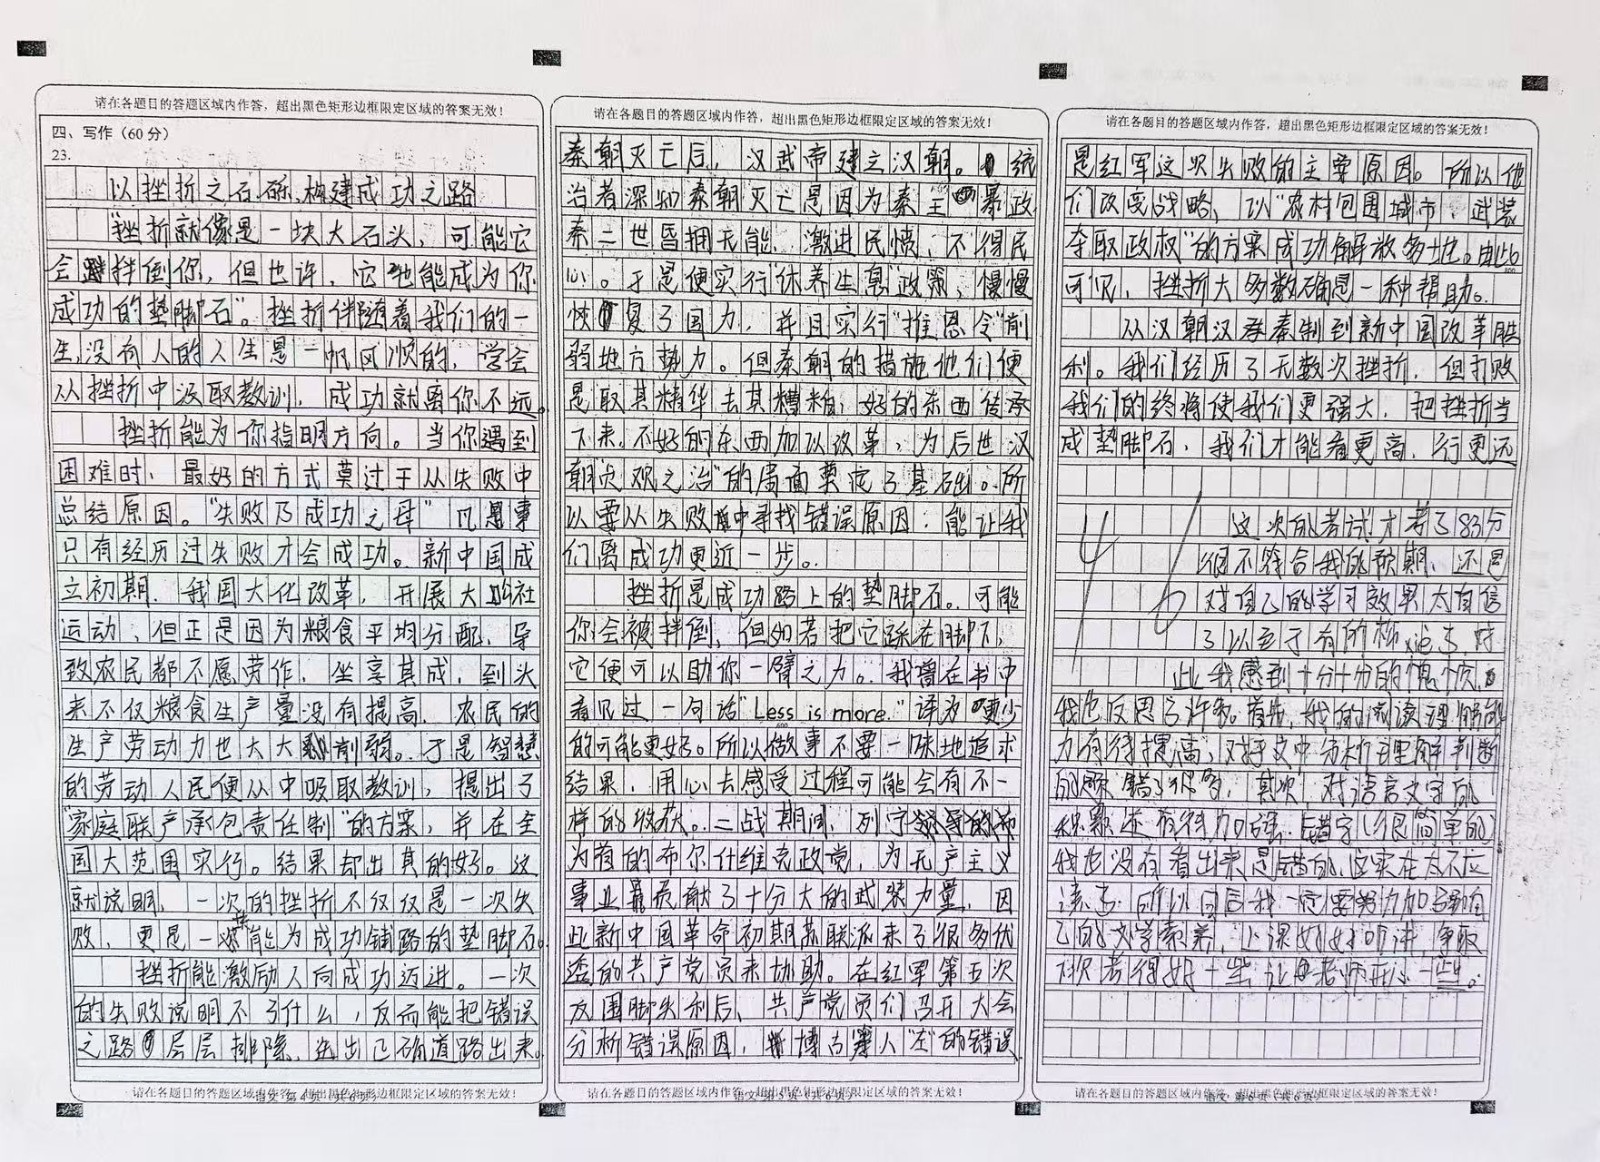 请在各题目的答题区域内作答，超出黑色矩形边框限定区域的答案无效！
四、写作（60分）
23.
以挫折之石砾,构建成功之路
"挫折就像是一块大石头，可能它
会绊倒你，但也许，它也能成为你
成功的垫脚石"。挫折伴随着我们的一
生,没有人的人生是一帆风顺的，学会
从挫折中汲取教训，成功就离你不远。
挫折能为你指明方向。当你遇到
困难时，最好的方式莫过于从失败中
总结原因。"失败乃成功之母"凡是事
只有经历过失败才会成功。新中国成
立初期，我国大化改革，开展大公社
运动，但正是因为粮食平均分配，导
致农民都不愿劳作，坐享其成，到头
来不仅粮食生产量没有提高，农民的
生产劳动力也大大削弱。于是智慧
的劳动人民便从中吸取教训，提出了
"家庭联产承包责任制"的方案，并在全
国大范围实行。结果却出其的好。这
就说明，一次的挫折不仅仅是一次失
败，更是一块能为成功铺路的垫脚石。
挫折能激励人向成功迈进。一次
的失败说明不了什么，反而能把错误
之路层层排除，选出正确道路出来。
请在各题目的答题区域内作答，超出黑色矩形边框限定区域的答案无效！
语文 第4页（共6页）
请在各题目的答题区域内作答，超出黑色矩形边框限定区域的答案无效！
秦朝灭亡后，汉武帝建立汉朝。统
治者深知秦朝灭亡是因为秦王暴政
秦二世昏拥无能，激进民愤，不得民
心。于是便实行"休养生息"政策，慢慢
恢复了国力，并且实行"推恩令"削
弱地方势力。但秦朝的措施他们便
是取其精华去其糟粕，好的东西传承
下来，不好的东西加以改革，为后世汉
朝"贞观之治"的局面奠定了基础。所
以要从失败中寻找错误原因，能让我
们离成功更近一步。
挫折是成功路上的垫脚石。可能
你会被拌倒，但如若把它踩在脚下，
它便可以助你一臂之力。我曾在书中
看见过一句话"Less is more."译为"更少
的可能更好。所以做事不要一味地追求
结果，用心去感受过程可能会有不一
样的收获。二战期间，列宁
为首的布尔什维克政党，为无产主义
事业贡献了十分大的武装力量，因
此新中国革命初期苏联派来了很多优
选的共产党员来协助。在红军第五次
反围脚失利后，共产党员们召开大会
分析错误原因，博古等人"左"的错误
请在各题目的答题区域内作答，超出黑色矩形边框限定区域的答案无效！
语文 第5页（共6页）
请在各题目的答题区域内作答，超出黑色矩形边框限定区域的答案无效！
是红军这次失败的主要原因。所以他
们改变战略，以"农村包围城市，武装
夺取政权"的方案成功解放多地。由此
可见，挫折大多数确是一种帮助。
从汉朝汉承秦制到新中国改革胜
利。我们经历了无数次挫折，但打败
我们的终将使我们更强大，把挫折当
成垫脚石，我们才能看更高，行更远
46
这次的考试才考了83分
很不符合我的预期，还是
对自己的学习效果太自信
了以至于有所松懈，对
此我感到十分十分的愧疚。
我也反思了许多。首先，我的阅读理解能
力有待提高，对于文中分析理解判断
的题错了很多，其次，对语言文字的
积累还有待加强，错字(很简单的)
我也没有看出来是错的，这实在太不应
该了。所以日后我一定要努力加强自
己的文学素养，上课好好听讲，争取
下次考得好一些让老师开心一些。
请在各题目的答题区域内作答，超出黑色矩形边框限定区域的答案无效！
语文 第6页（共6页）